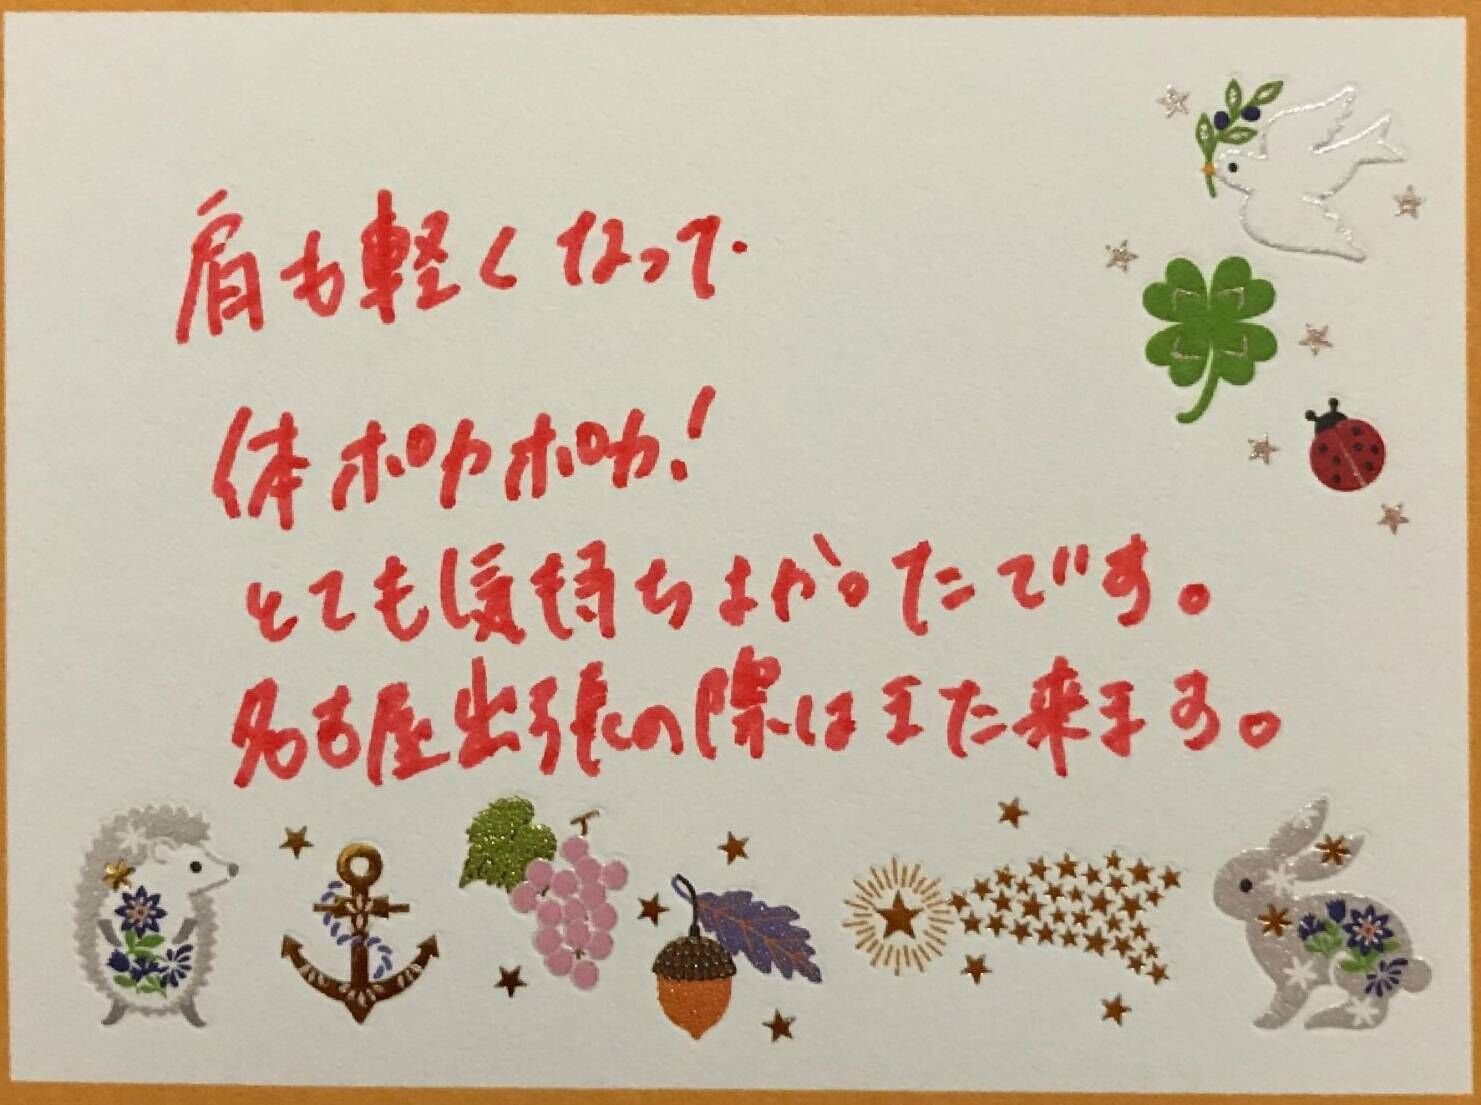 肩も軽くなって
体ポカポカ!
とても気持ちよかったです。
名古屋出張の際はまた来ます。